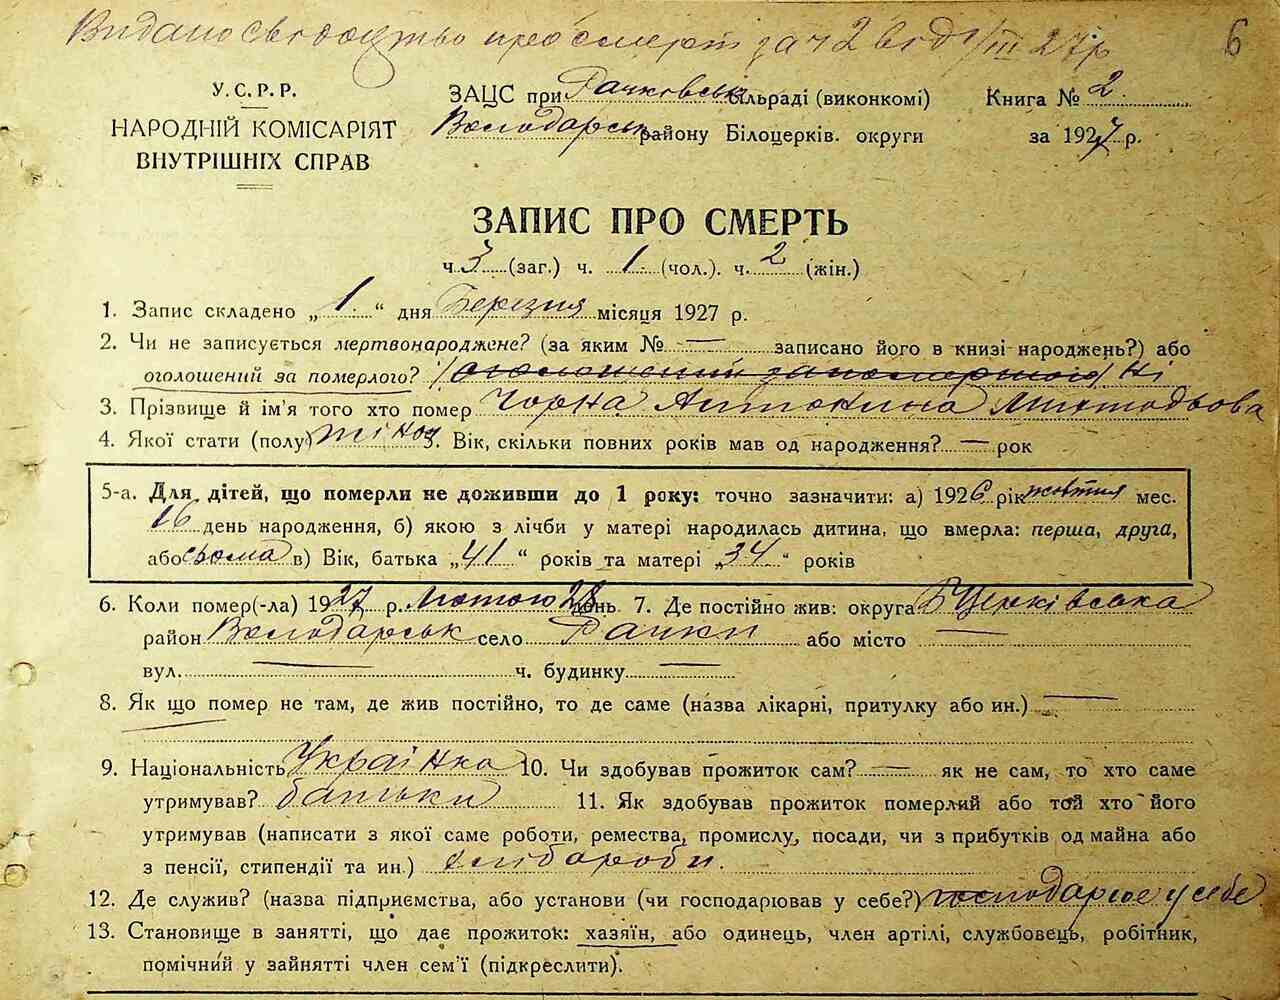 Видано свідоцтво про смерть за ч 2 від 1/III 27 р
6
У.С.Р.Р.
НАРОДНІЙ КОМІСАРІЯТ
ВНУТРІШНІХ СПРАВ
ЗАЦС при Рачковськ сільраді (виконкомі) Книга № 2
Володарськ району Білоцерків. округи за 1927 р.
ЗАПИС ПРО СМЕРТЬ
ч. 3 (заг.) ч. 1 (чол.). ч. 2 (жін.)
1. Запис складено „1“ дня Березня місяця 1927 р.
2. Чи не записується мертвонароджене? (за яким № — записано його в книзі народжень?) або
оголошений за померлого? (оголошений за померлого) Ні
3. Прізвище й ім'я того хто помер Чорна Антонина
4. Якої стати (полу) жіноч 5. Вік, скільки повних років мав од народження? — рок
5-а. Для дітей, що померли не доживши до 1 року: точно зазначити: а) 1926 рік жовтня мес.
16 день народження, б) якою з лічби у матері народилась дитина, що вмерла: перша, друга,
або сьома в) Вік, батька „41“ років та матері „34“ років
6. Коли помер(-ла) 1927 р. лютого 28 день 7. Де постійно жив: округа БЦерківська
район Володарськ село Рачки або місто —
вул. — ч. будинку —
8. Як що помер не там, де жив постійно, то де саме (назва лікарні, притулку або ин.) —
9. Національність Українка 10. Чи здобував прожиток сам? — як не сам, то хто саме
утримував? батьки 11. Як здобував прожиток померлий або той хто його
утримував (написати з якої саме роботи, ремества, промислу, посади, чи з прибутків од майна або
з пенсії, стипендії та ин.) хлібароби.
12. Де служив? (назва підприємства, або установи (чи господарював у себе?) господарює у себе
13. Становище в занятті, що дає прожиток: хазяїн, або одинець, член артілі, службовець, робітник,
помічний у зайнятті член сем'ї (підкреслити).